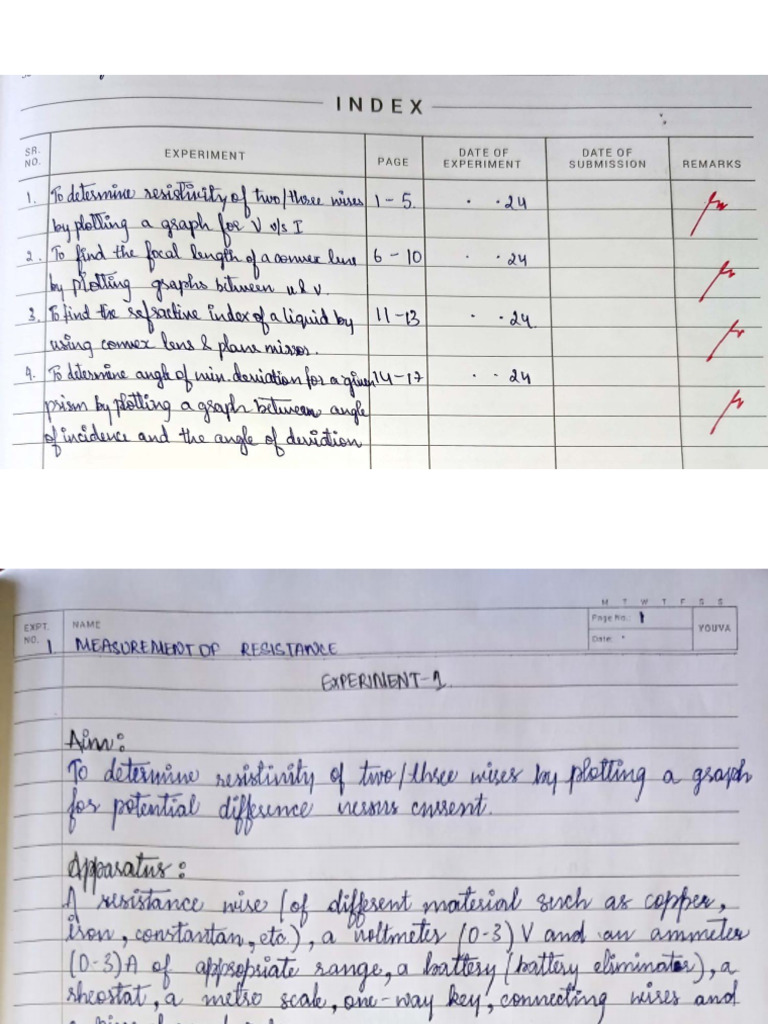 INDEX
SR. NO. EXPERIMENT PAGE DATE OF EXPERIMENT DATE OF SUBMISSION REMARKS
1. To determine resistivity of two/three wires 1-5 . .24
by plotting a graph for V v/s I
2. To find the focal length of a convex lens 6-10 . .24
by plotting graphs between u & v.
3. To find the refractive index of a liquid by 11-13 . .24.
using convex lens & plane mirror.
4. To determine angle of min. deviation for a given 14-17 . .24
prism by plotting a graph between angle
of incidence and the angle of deviation
M T W T F S S
EXPT. NO. 1. NAME MEASUREMENT OF RESISTANCE Page No.: 1 Date: YOUVA
EXPERIMENT-1.
Aim:
To determine resistivity of two/three wires by plotting a graph
for potential difference versus current.
Apparatus:
A resistance wire (of different material such as copper,
iron, constantan, etc.), a voltmeter (0-3) V and an ammeter
(0-3)A of appropriate range, a battery (battery eliminator), a
rheostat, a metre scale, one-way key, connecting wires and